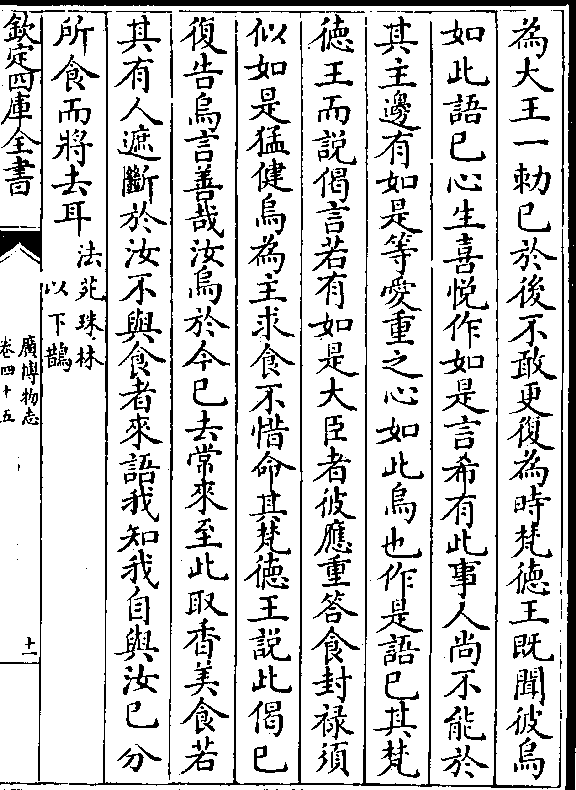 為大王一勅已於後不敢更復為時梵德王既聞彼烏
如此語已心生喜悅作如是言希有此事人尚不能於
其主邊有如是等愛重之心如此烏也作是語已其梵
德王而說偈言若有如是大臣者彼應重答食封祿須
似如是猛健烏為主求食不惜命其梵德王說此偈已
復告烏言善哉汝烏於今已去常來至此取香美食若
其有人遮斷於汝不與食者來語我知我自與汝已分
所食而將去耳法苑珠林
以下鵲
欽定四庫全書
廣博物志
卷四十五
十一